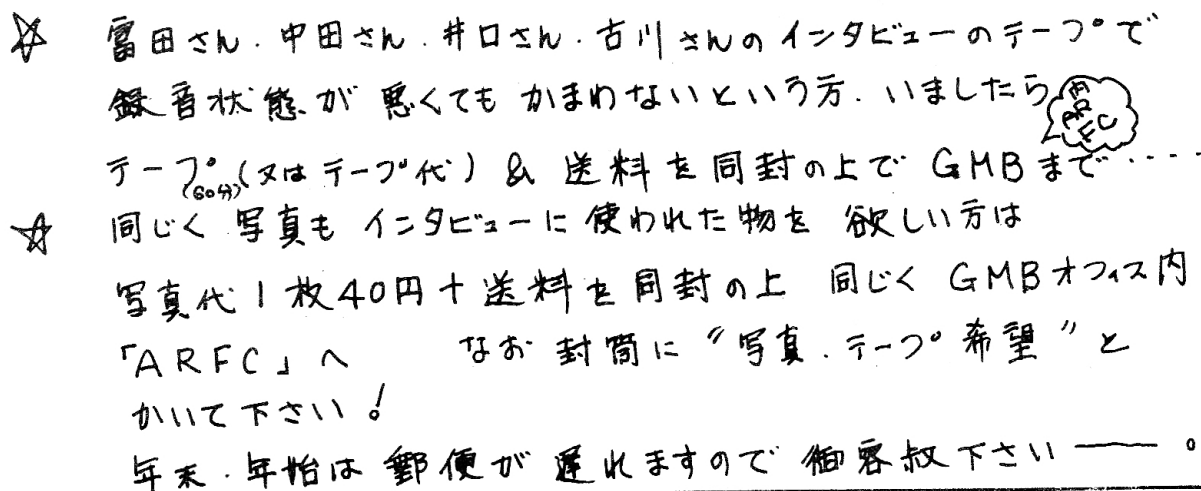 ☆ 富田さん.中田さん.井口さん.古川さんのインタビューのテープで
録音状態が悪くてもかまわないという方.いましたら
内ARFC
テープ(又はテープ代)&送料を同封の上でGMBまで・・・・・
(60分)
☆ 同じく写真もインタビューに使われた物を欲しい方は
写真代1枚40円+送料を同封の上 同じくGMBオフィス内
「ARFC」へ なお封筒に"写真.テープ希望"と
かいて下さい!
年末.年始は郵便が遅れますので御容赦下さい――。